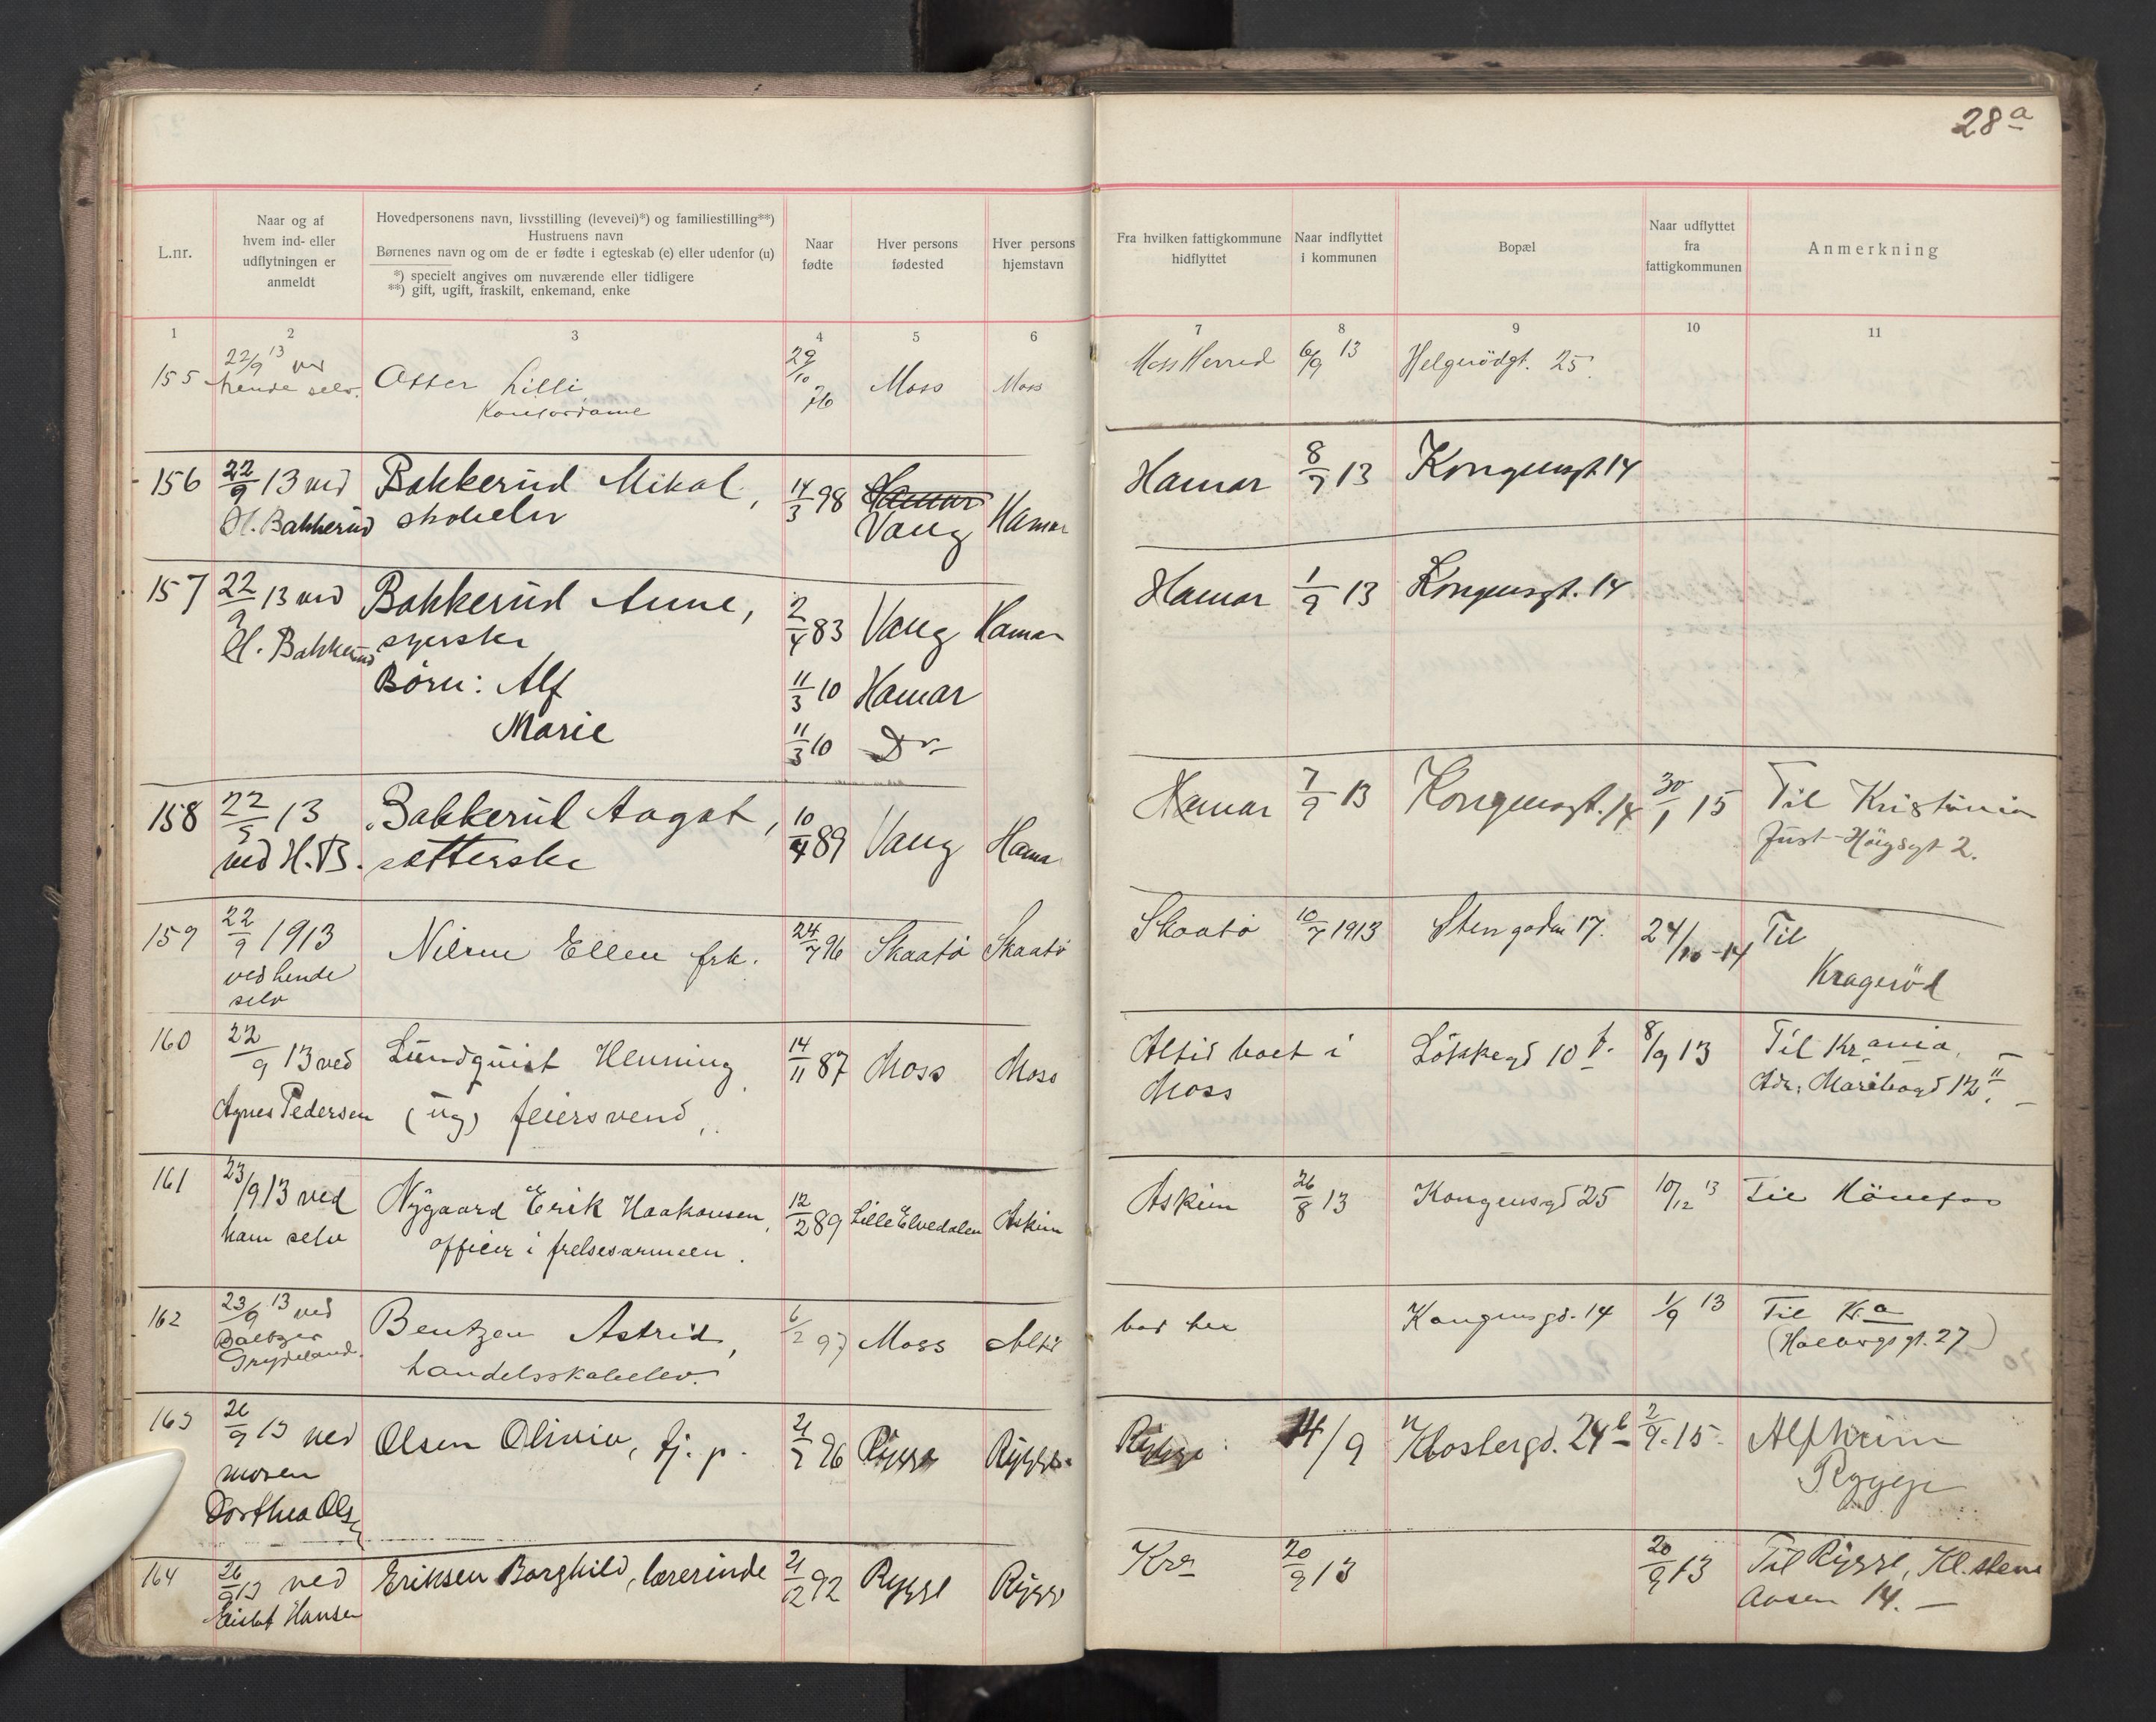 28 a
L.nr.
Naar og af
hvem ind- eller
udflytningen er
anmeldt
Hovedpersonens navn, livsstilling (levevei)*) og familiestilling**)
Hustruens navn
Børnenes navn og om de er fødte i egteskab (e) eller udenfor (u)
*) specielt angives om nuværende eller tidligere
**) gift, ugift, fraskilt, enkemand, enke
Naar
fødte
Hver persons
fødested
Hver persons
hjemstavn
Fra hvilken fattigkommune
hidflyttet
Naar indflyttet
i kommunen
Bopæl
Naar udflyttet
fra
fattigkommunen
Anmerkning
1 2 3 4 5 6 7 8 9 10 11
155 22/9 13 ved Lilli 29/10 Moss Moss Moss Herred 6/9 13 Helgerödgt. 25
hende selv.
Kontordame
156 22/9 13 ved Bakkerud Mikal, 14/3 98 Hamar Hamar Hamar 8/7 13 Kongensgt. 14
H. Bakkerud skoelev Vang
157 22/9 13 ved Bakkerud Anne, 2/4 83 Vang Hamar Hamar 1/9 13 Kongensgt. 14
H. Bakkerud syerske
Børn: Alf 11/3 10 Hamar
Marie 11/3 10 Do
158 22/9 13 Bakkerud Aagot, 10/4 89 Vang Hamar Hamar 7/9 13 Kongensgt. 14 30/1 15 Til Kristiania
ved H. B. sætterske Just Höigsgt 2.
159 22/9 1913 Nilsen Ellen frk. 24/7 96 Skaatö Skaatö Skaatö 10/7 1913 Stengaden 17. 24/10 -14 Til
ved hende Krageröd
selv
160 22/9 13 ved Lundquist Henning 14/11 87 Moss Moss Altid boet i Lökkegd 10 8/9 13 Til Kr.ania.
Agnes Pedersen (ug) feiersvend, Moss Adr: Maribogd 12 II.
161 23/9 13 ved Nygaard Erik Haakonsen, 12/2 89 Lille Elvedalen Askim Askim 26/8 13 Kongensgd 25 10/12 13 Til Hönefos
ham selv officer i frelsesarmeen.
162 23/9 13 ved Bentzen Astrid, 6/2 97 Moss bor her Kongensgd. 14 1/9 13 Til Kr.a
Baltzer handelsskoleelev. (Holbergsgt. 27)
Grydeland.
163 26/9 13 ved Olsen Olivia, tj. p. 96 Rygge Rygge Rygge 14/9 n Klostergd. 24 b 2/9. 15. Alfheim
moren Rygge
Dorthea Olsen
164 26/9 13 ved Eriksen Borghild, lærerinde 21/12 92 Rygge Rygge Kra 20/9 13 20/9 13 Til Rygge, Kl. stens
Hansen Aasen 14.